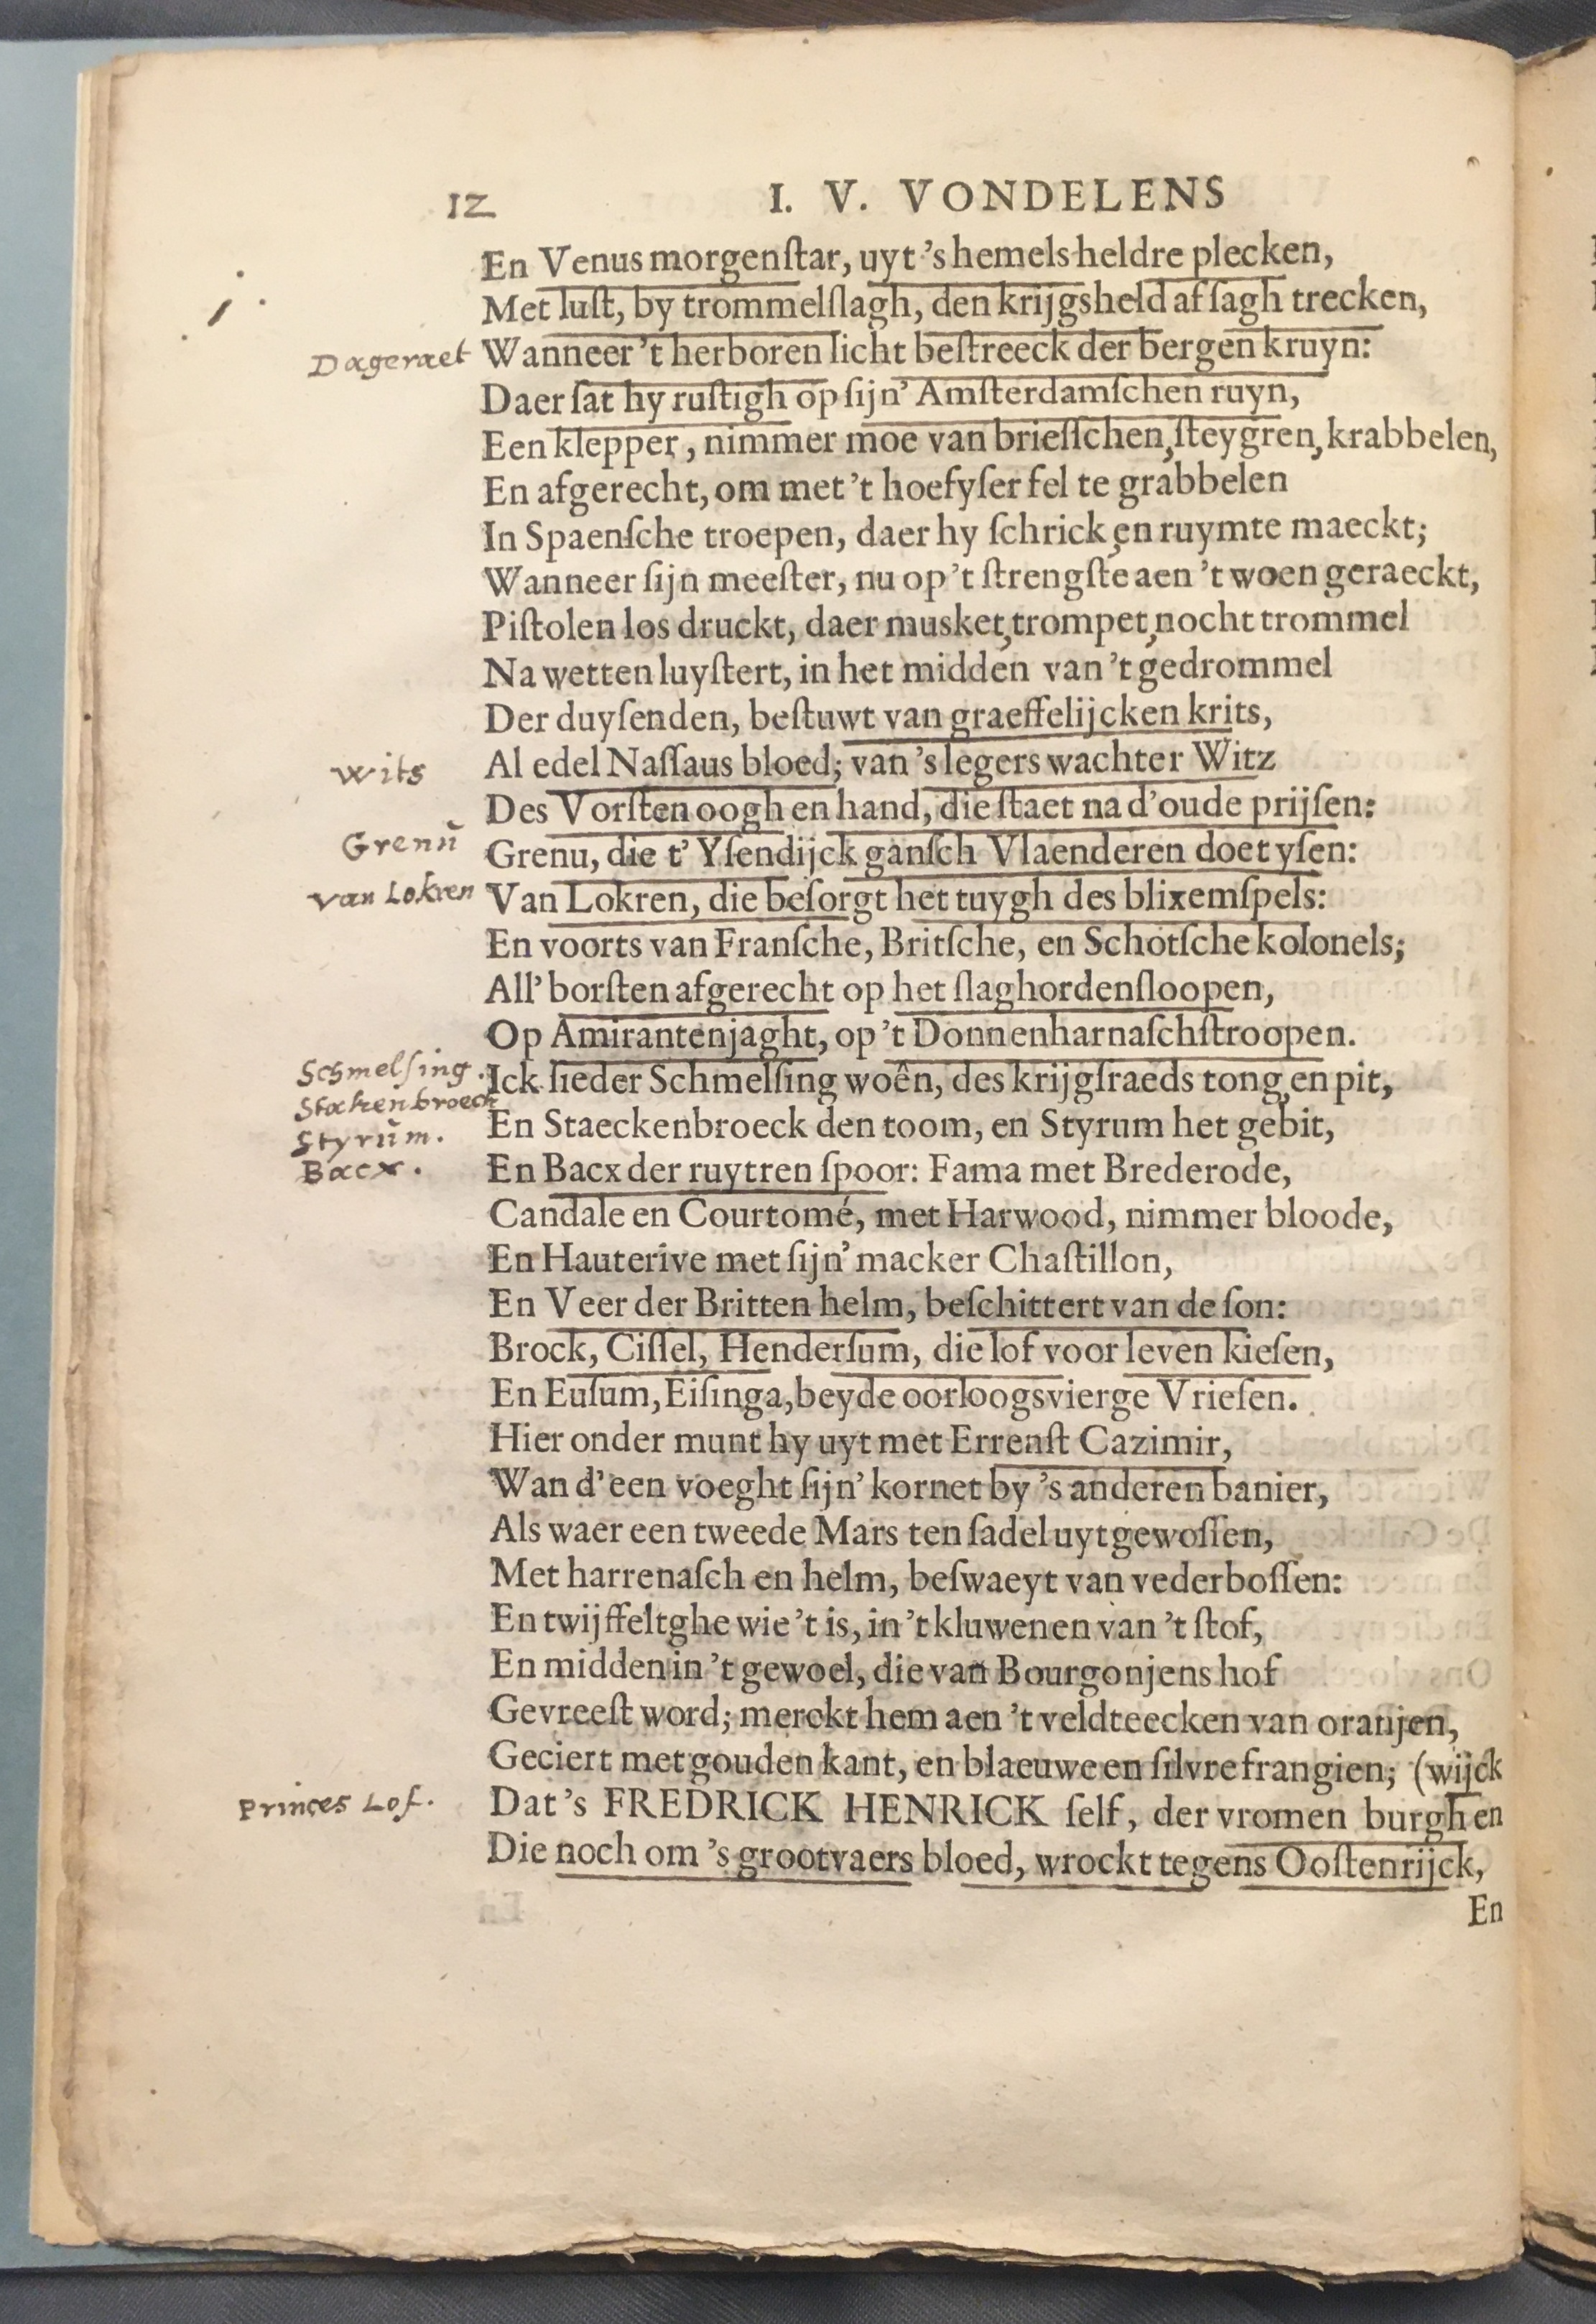 12 I. V. VONDELENS
En Venus morgenſtar, uyt 's hemels heldre plecken,
Met luſt, by trommelſlagh, den krijgsheld af ſagh trecken,
Dageraet Wanneer 't herboren licht beſtreeck der bergen kruyn:
Daer ſat hy ruſtigh op ſijn' Amſterdamſchen ruyn,
Een klepper, nimmer moe van brieſſchen, ſteygren, krabbelen,
En afgerecht, om met 't hoefyſer fel te grabbelen
In Spaenſche troepen, daer hy ſchrick, en ruymte maeckt;
Wanneer ſijn meeſter, nu op 't ſtrengſte aen 't woen geraeckt,
Piſtolen los druckt, daer musket, trompet, nocht trommel
Na wetten luyſtert, in het midden van 't gedrommel
Der duyſenden, beſtuwt van graeffelijcken krits,
Wits Al edel Naſſaus bloed; van 's legers wachter Witz
Des Vorſten oogh en hand, die ſtaet na d'oude prijſen:
Grenŭ Grenu, die t' Yſendijck ganſch Vlaenderen doet yſen:
Van Lokren Van Lokren, die beſorgt het tuygh des blixemſpels:
En voorts van Franſche, Britſche, en Schotſche kolonels;
All' borſten afgerecht op het ſlaghordenſloopen,
Op Amirantenjaght, op 't Donnenharnaſchſtroopen.
Schmelſing. Ick ſieder Schmelſing woên, des krijgſraeds tong, en pit,
Stakenbroeck
Styrŭm. En Staeckenbroeck den toom, en Styrum het gebit,
Bacx. En Bacx der ruytren ſpoor: Fama met Brederode,
Candale en Courtomé, met Harwood, nimmer bloode,
En Hauterive met ſijn' macker Chaſtillon,
En Veer der Britten helm, beſchittert van de ſon:
Brock, Ciſſel, Henderſum, die lof voor leven kieſen,
En Euſum, Eiſinga, beyde oorloogsvierge Vrieſen.
Hier onder munt hy uyt met Errenſt Cazimir,
Wan d'een voeght ſijn' kornet by 's anderen banier,
Als waer een tweede Mars ten ſadel uyt gewoſſen,
Met harrenaſch en helm, beſwaeyt van vederboſſen:
En twijffelt ghe wie 't is, in 't kluwenen van 't ſtof,
En midden in 't gewoel, die van Bourgonjens hof
Gevreeſt word; merckt hem aen 't veldteecken van oranjen,
Geciert met gouden kant, en blaeuwe en ſilvre frangien; (wijck
Princes Lof. Dat 's FREDRICK HENRICK ſelf, der vromen burgh en
Die noch om 's grootvaers bloed, wrockt tegens Ooſtenrijck,
En